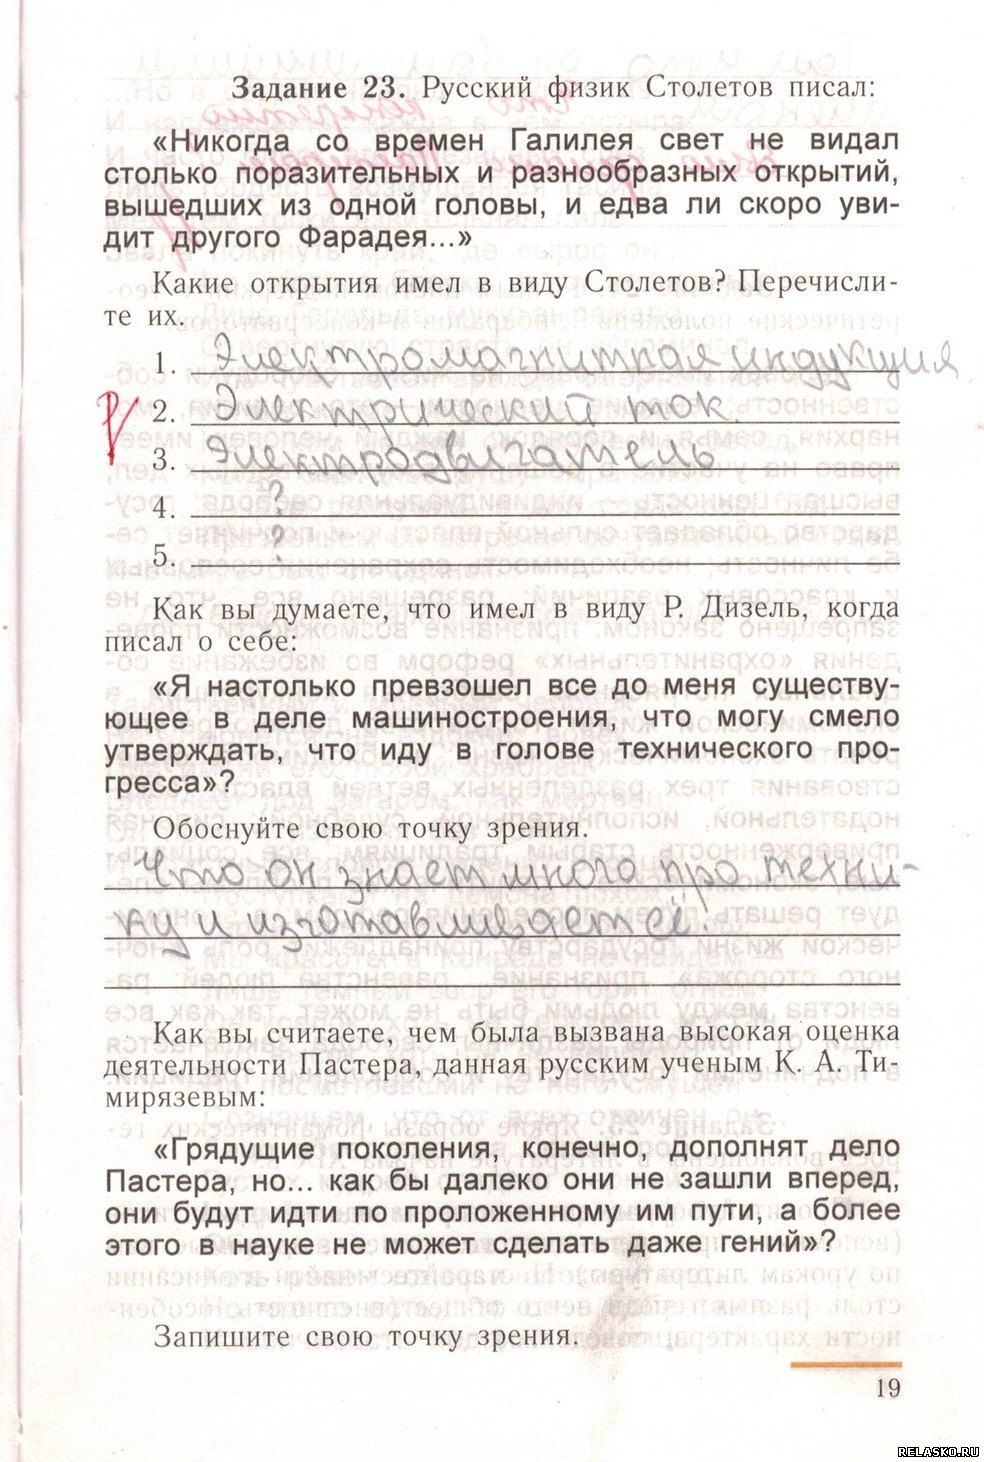 Задание 23. Русский физик Столетов писал:
«Никогда со времен Галилея свет не видал
столько поразительных и разнообразных открытий,
вышедших из одной головы, и едва ли скоро уви-
дит другого Фарадея...»
Какие открытия имел в виду Столетов? Перечисли-
те их.
1. Электромагнитная индукция
2. Электрический ток.
3. Электродвигатель
4. ?
5. ?
Как вы думаете, что имел в виду Р. Дизель, когда
писал о себе:
«Я настолько превзошел все до меня существу-
ющее в деле машиностроения, что могу смело
утверждать, что иду в голове технического про-
гресса»?
Обоснуйте свою точку зрения.
Что он знает много про техни-
ку и изготавливает её.
Как вы считаете, чем была вызвана высокая оценка
деятельности Пастера, данная русским ученым К. А. Ти-
мирязевым:
«Грядущие поколения, конечно, дополнят дело
Пастера, но... как бы далеко они не зашли вперед,
они будут идти по проложенному им пути, а более
этого в науке не может сделать даже гений»?
Запишите свою точку зрения.
19
RELASKO.RU